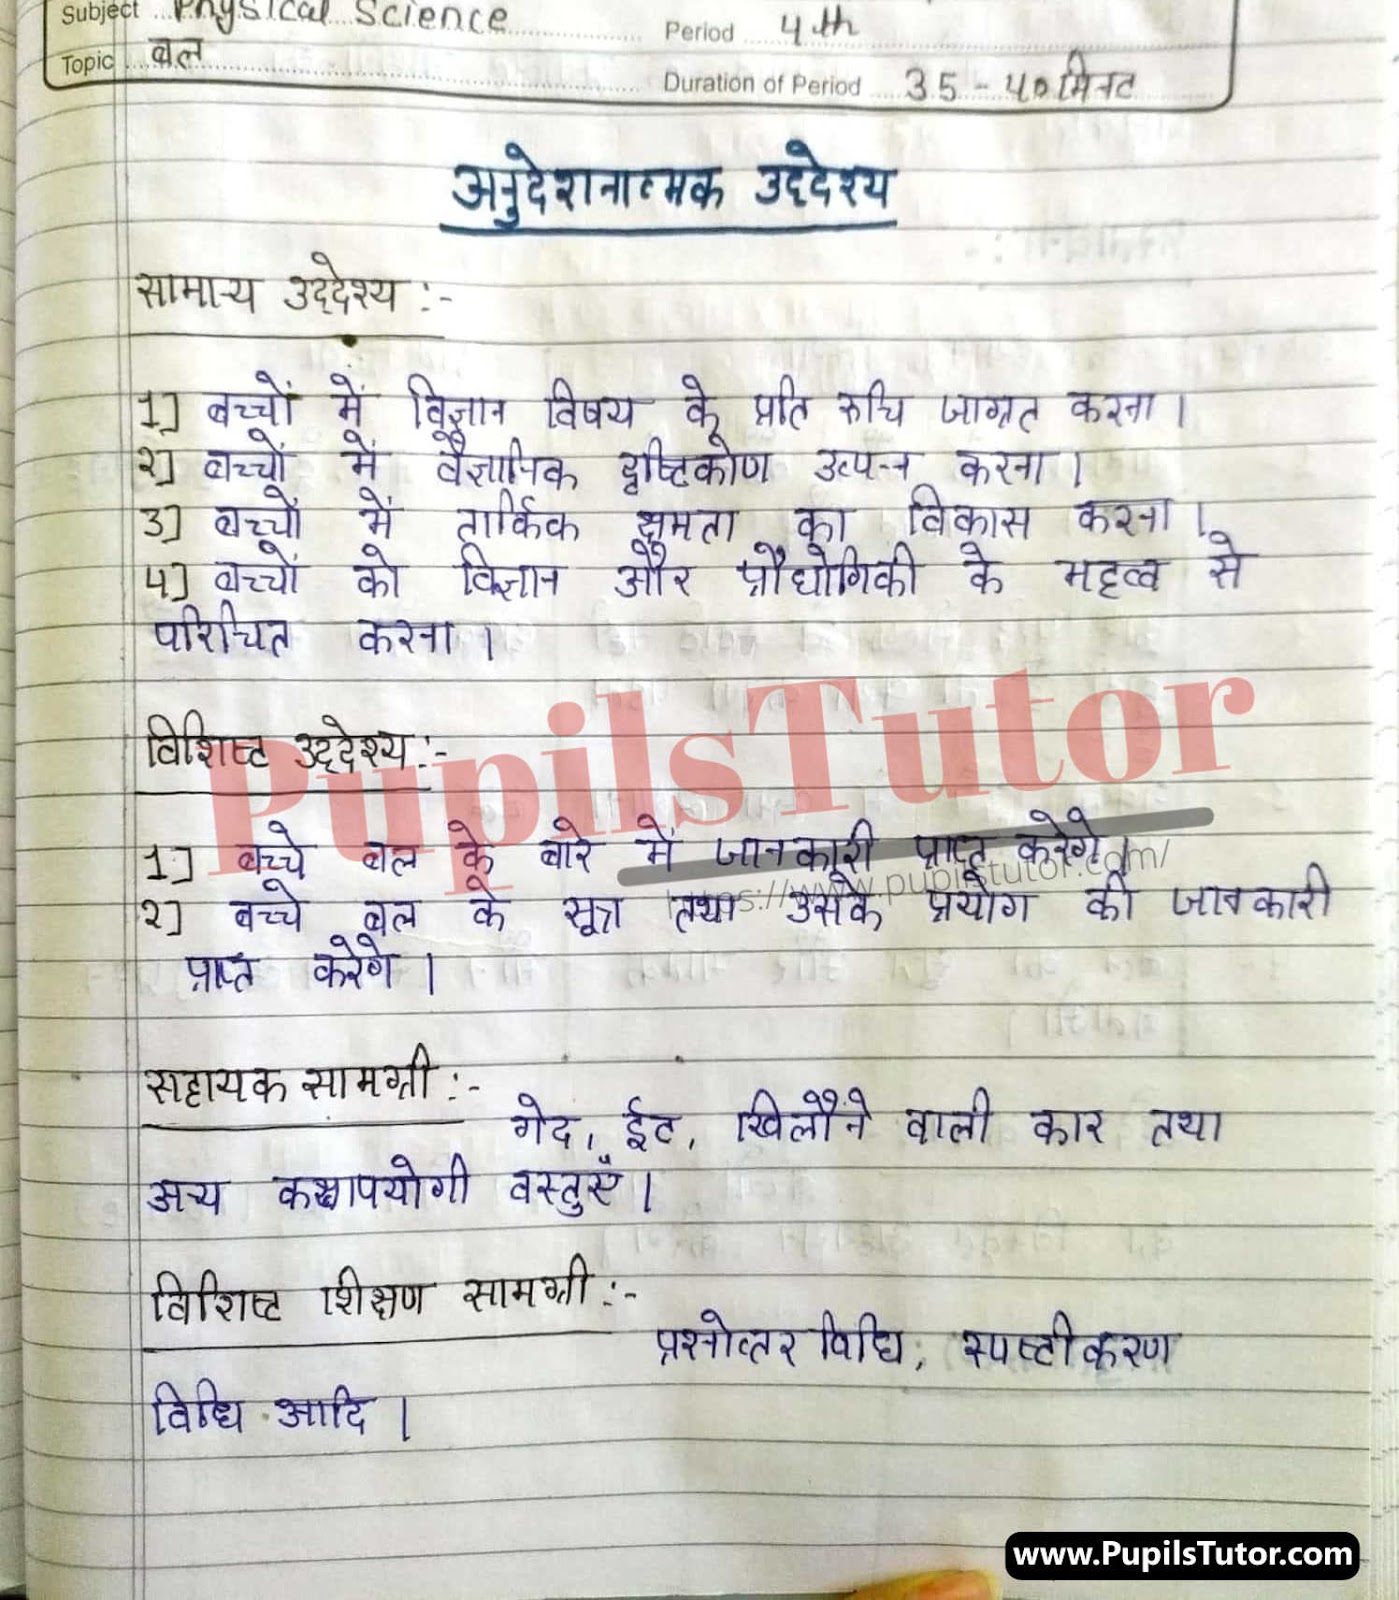 Subject Physical Science Period 4th
Topic बल Duration of Period 35 - 40 मिनट
अनुदेशनात्मक उद्देश्य
सामान्य उद्देश्य :-
1] बच्चों में विज्ञान विषय के प्रति रुचि जाग्रत करना।
2] बच्चों में वैज्ञानिक दृष्टिकोण उत्पन्न करना।
3] बच्चों में तार्किक क्षमता का विकास करना।
4] बच्चों को विज्ञान और प्रौधोगिकी के महत्व से
परिचित करना।
विशिष्ट उद्देश्य :-
PupilsTutor
1] बच्चे बल के बारे में जानकारी प्राप्त करेगे।
https://www.pupilstutor.com/
2] बच्चे बल के सूत्र तथा उसके प्रयोग की जानकारी
प्राप्त करेगे।
सहायक सामग्री :-
गेद, ईट, खिलौने वाली कार तथा
अन्य कक्षापयोगी वस्तुएँ।
विशिष्ट शिक्षण सामग्री :-
प्रश्नोत्तर विधि, स्पष्टीकरण
विधि आदि।
www.PupilsTutor.com